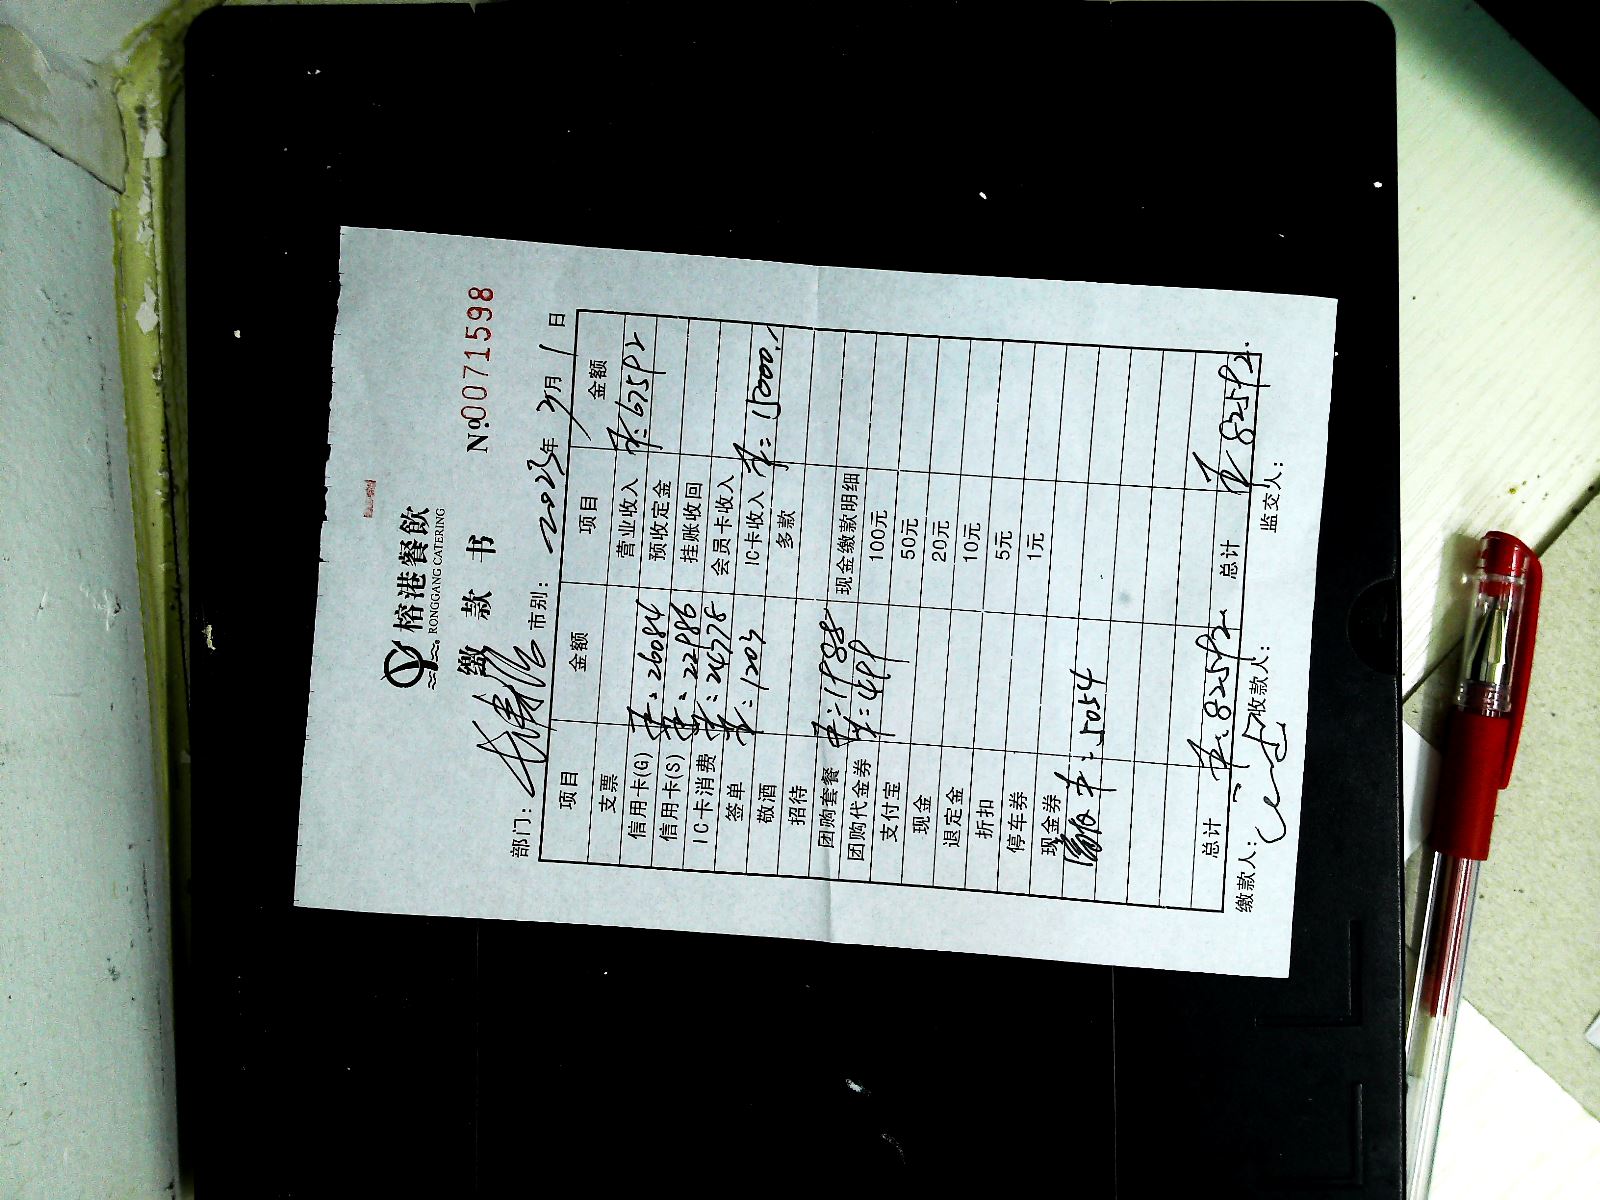 榕港餐飲
RONGGANG CATERING
缴 款 书
№0071598
部门: 市别: 2023年 3月 1日
项目 金额 项目 金额
支票 营业收入 ¥:67592
信用卡(G) ¥:26084 预收定金
信用卡(S) ¥:22986 挂账收回
IC卡消费 ¥:24778 会员卡收入
签单 ¥:1203 IC卡收入 ¥:15000.
敬酒 多款
招待
团购套餐 ¥:1988 现金缴款明细
团购代金券 ¥:499 100元
支付宝 50元
现金 20元
退定金 10元
折扣 5元
停车券 1元
现金券
¥:5054
总计 ¥:82592 总计 ¥82592.
缴款人: 收款人: 监交人: